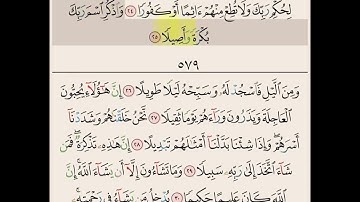 لِحُكْمِ رَبِّكَ وَلَا تُطِعْ مِنْهُمْ ءَاثِمًا أَوْ كَفُورًا ٢٤ وَاذْكُرِ اسْمَ رَبِّكَ
بُكْرَةً وَأَصِيلًا ٢٥
٥٧٩
وَمِنَ الَّيْلِ فَاسْجُدْ لَهُ وَسَبِّحْهُ لَيْلًا طَوِيلًا ٢٦ إِنَّ هَٰؤُلَاءِ يُحِبُّونَ
الْعَاجِلَةَ وَيَذَرُونَ وَرَاءَهُمْ يَوْمًا ثَقِيلًا ٢٧ نَّحْنُ خَلَقْنَاهُمْ وَشَدَدْنَا
أَسْرَهُمْ وَإِذَا شِئْنَا بَدَّلْنَا أَمْثَالَهُمْ تَبْدِيلًا ٢٨ إِنَّ هَٰذِهِ تَذْكِرَةٌ فَمَن
شَاءَ اتَّخَذَ إِلَىٰ رَبِّهِ سَبِيلًا ٢٩ وَمَا تَشَاءُونَ إِلَّا أَن يَشَاءَ اللَّهُ إِنَّ
اللَّهَ كَانَ عَلِيمًا حَكِيمًا ٣٠ يُدْخِلُ مَن يَشَاءُ فِي رَحْمَتِهِ